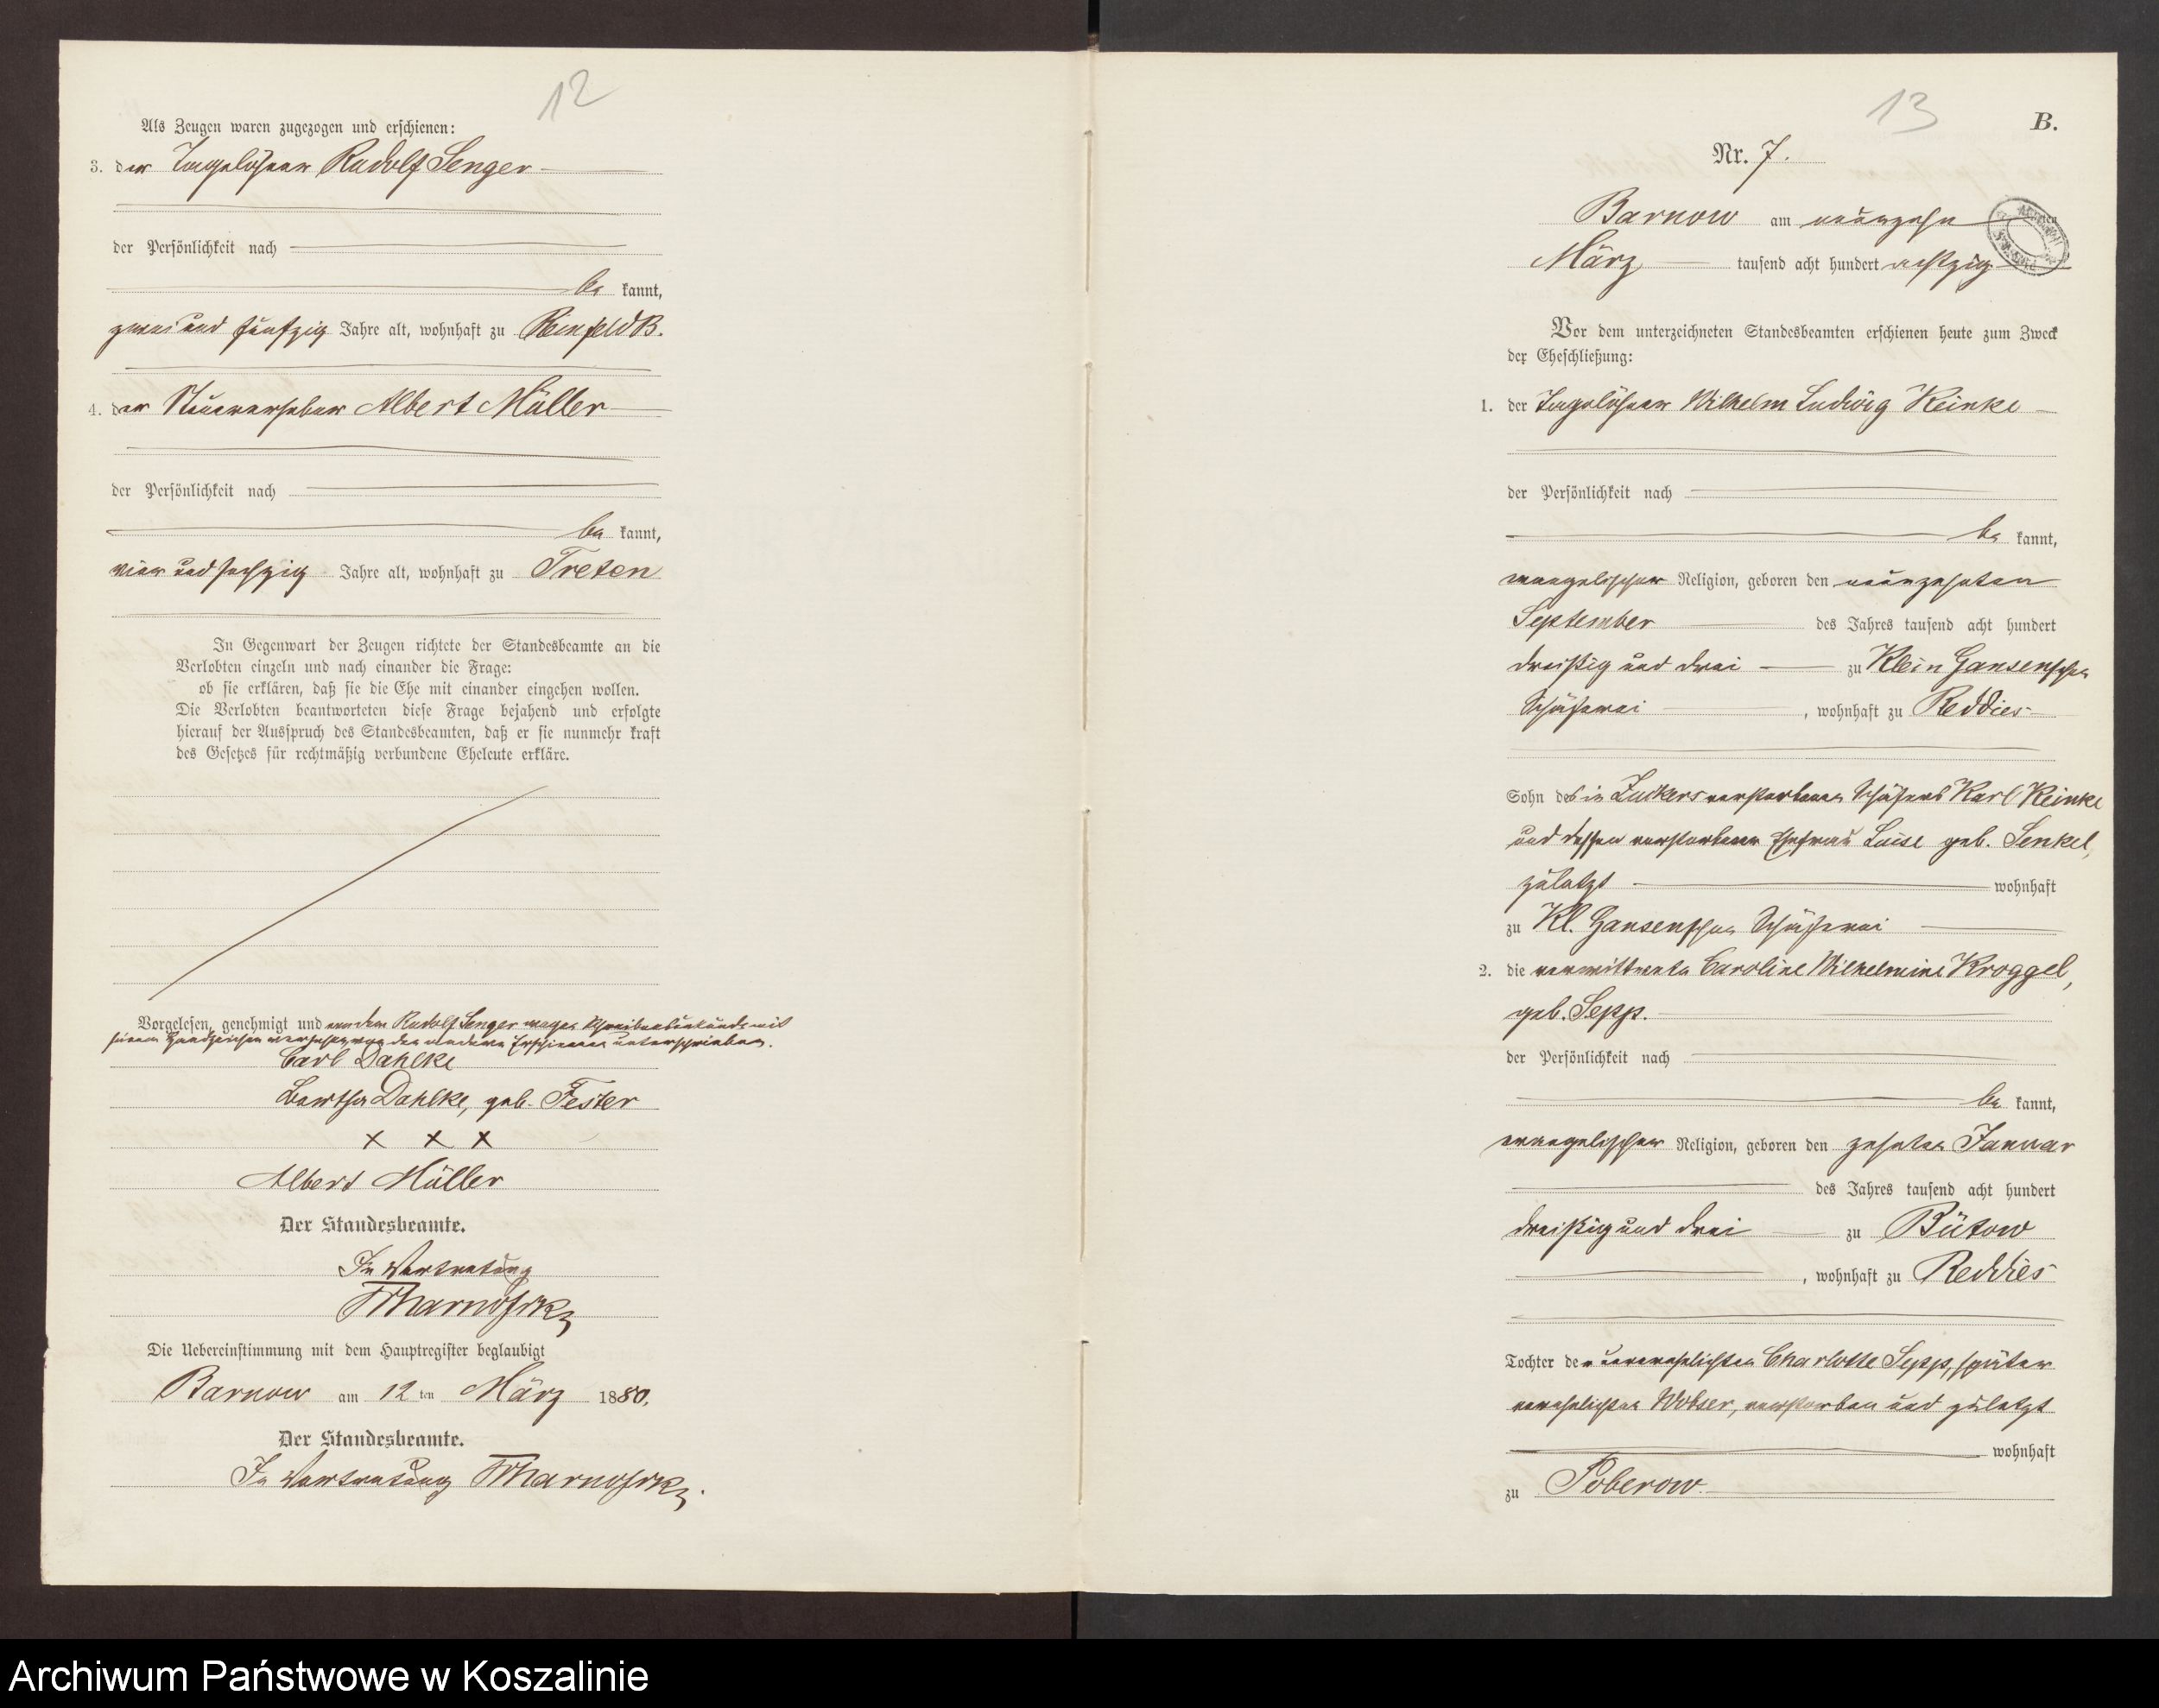 12
Als Zeugen waren zugezogen und erschienen:
3. der Tagelöhner Rudolf Senger
der Persönlichkeit nach
be kannt,
zwei und fünfzig Jahre alt, wohnhaft zu Reinfeld B.
4. der Steuererheber Albert Müller
der Persönlichkeit nach
be kannt,
vier und sechzig Jahre alt, wohnhaft zu Treten
In Gegenwart der Zeugen richtete der Standesbeamte an die
Verlobten einzeln und nach einander die Frage:
ob sie erklären, daß sie die Ehe mit einander eingehen wollen.
Die Verlobten beantworteten diese Frage bejahend und erfolgte
hierauf der Ausspruch des Standesbeamten, daß er sie nunmehr kraft
des Gesetzes für rechtmäßig verbundene Eheleute erkläre.
Vorgelesen, genehmigt und von dem Rudolf Senger wegen Schreibensunkunde mit
seinem Handzeichen versehen, von den anderen Erschienenen unterschrieben.
Carl Dahlke
Bertha Dahlke, geb. Fester
x x x
Albert Müller
Der Standesbeamte.
In Vertretung
Die Uebereinstimmung mit dem Hauptregister beglaubigt
Barnow am 12 ten März 1880.
Der Standesbeamte.
In Vertretung
13
B.
Nr. 7.
Barnow am neunzehn
März tausend acht hundert achtzig
Vor dem unterzeichneten Standesbeamten erschienen heute zum Zweck
der Eheschließung:
1. der Tagelöhner Wilhelm Ludwig Reinke
der Persönlichkeit nach
be kannt,
evangelischer Religion, geboren den neunzehnten
September des Jahres tausend acht hundert
dreißig und drei zu Klein Gansenschen
Schäferei, wohnhaft zu Reddies
Sohn des in Zuckers verstorbenen Schäfers Karl Reinke
und dessen verstorbenen Ehefrau Luise geb. Senkel,
zuletzt wohnhaft
zu Kl. Gansenschen Schäferei
2. die verwittwete Caroline Wilhelmine Kroggel,
geb. Sepp.
der Persönlichkeit nach
be kannt,
evangelischer Religion, geboren den zehnten Januar
des Jahres tausend acht hundert
dreißig und drei zu Bütow
, wohnhaft zu Reddies
Tochter der unverehelichten Charlotte Sepp, später
verehelichten Wobser, verstorben und zuletzt
wohnhaft
zu Poberow
Archiwum Państwowe w Koszalinie